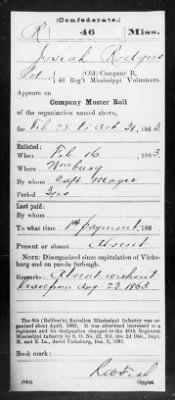 (Confederate.)
R 46 Miss.
Josiah Rodgers
Pvt., (Old) Company B,
46 Reg't Mississippi Volunteers.
Appears on
Company Muster Roll
of the organization named above,
for Feb 28 to Oct 31, 1863.
Enlisted:
When Feb 16, 1863.
Where
By whom Capt. Magee
Period 3 yrs
Last paid:
By whom
To what time 1st payment, 186 .
Present or absent Absent
NOTE: Disorganized since capitulation of Vicksburg and on parole furlough.
Remarks: Absent without
Aug 23 1863
The 6th (Balfour's) Battalion Mississippi Infantry was
organized about April, 1862. It was afterward increased to
a regiment and its designation changed to the 46th Regiment
Mississippi Infantry by S. O. No.
M. and E. La., dated Vicksburg, Dec. 2, 1862.
Book mark:
(642)
Copyist.